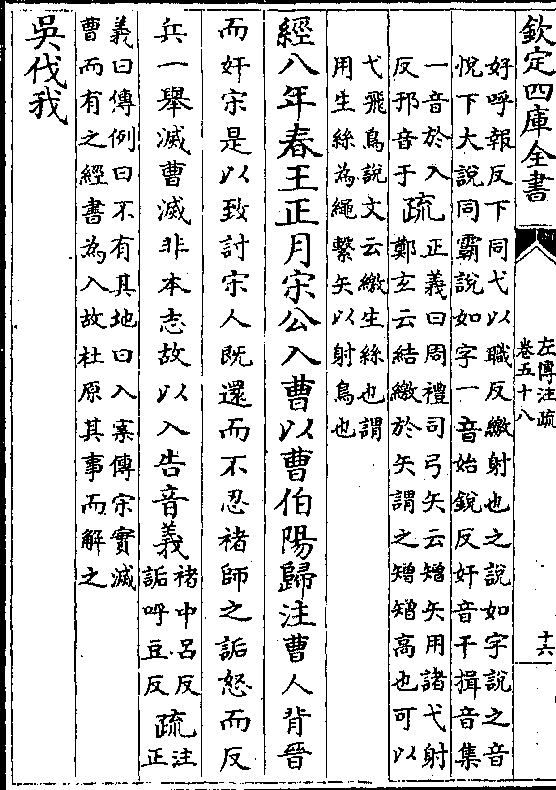 欽定四庫全書
左傳注疏
卷五十八
十六
好呼報反下同弋以職反繳射也之說如字說之音
悅下大說同霸說如字一音始銳反奸音干揖音集
一音於入
反邘音于
疏
正義曰周禮司弓矢云矰矢用諸弋射
鄭玄云結繳於矢謂之矰矰高也可以
弋飛鳥說文云繳生絲也謂
用生絲為繩繫矢以射鳥也
經八年春王正月宋公入曹以曹伯陽歸注曹人背晉
而奸宋是以致討宋人既還而不忍褚師之詬怒而反
兵一舉滅曹滅非本志故以入告音義
褚中呂反
詬呼豆反
疏
注
正
義曰傳例曰不有其地曰入案傳宋實滅
曹而有之經書為入故杜原其事而解之
吳伐我